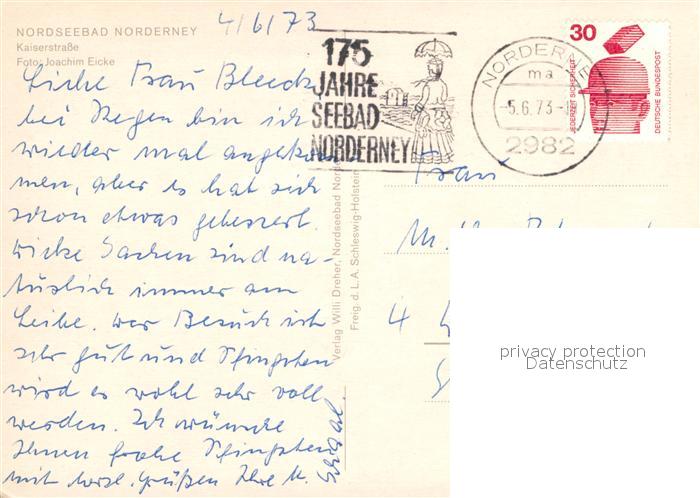 NORDSEEBAD NORDERNEY
Kaiserstraße
Foto: Joachim Eicke
4/6/73
Liebe Frau Bleeck
bei Regen bin ich
wieder mal angekom
men, aber es hat sich
schon etwas gebessert.
Dicke Sachen sind na-
türlich immer am
Leibe. Der Besuch ist
sehr gut und Pfingsten
wird es wohl sehr voll
werden. Ich wünsche
Ihnen frohe Pfingsten
mit herzl. Grüßen Ihre M.
175
JAHRE
SEEBAD
NORDERNEY
NORDERNE
ma
-5.6.73-
2982
30
JEDERZEIT SICHERHEIT
DEUTSCHE BUNDESPOST
Verlag Willi Dreher, Nordseebad Norde
Freig. d. L.A. Schleswig-Holstein
Frau
M.
4
privacy protection
Datenschutz